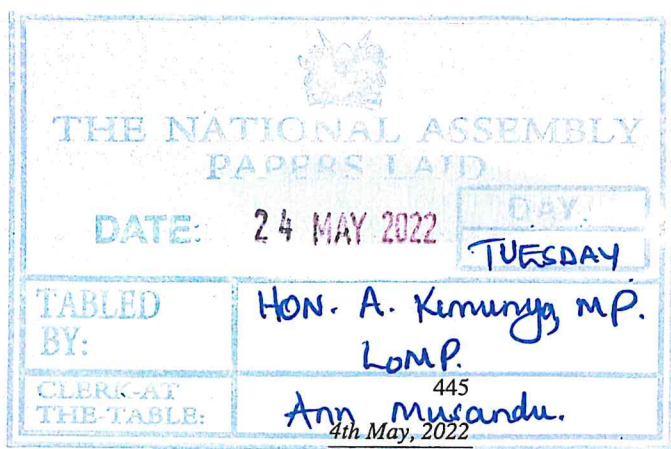 THE NATIONAL ASSEMBLY
PAPERS LAID
DATE: 24 MAY 2022
DAY.
TUESDAY
TABLED BY:
HON. A. Kimunya, MP.
LOMP.
445
CLERK-AT THE-TABLE:
Ann Musandu.
4th May, 2022